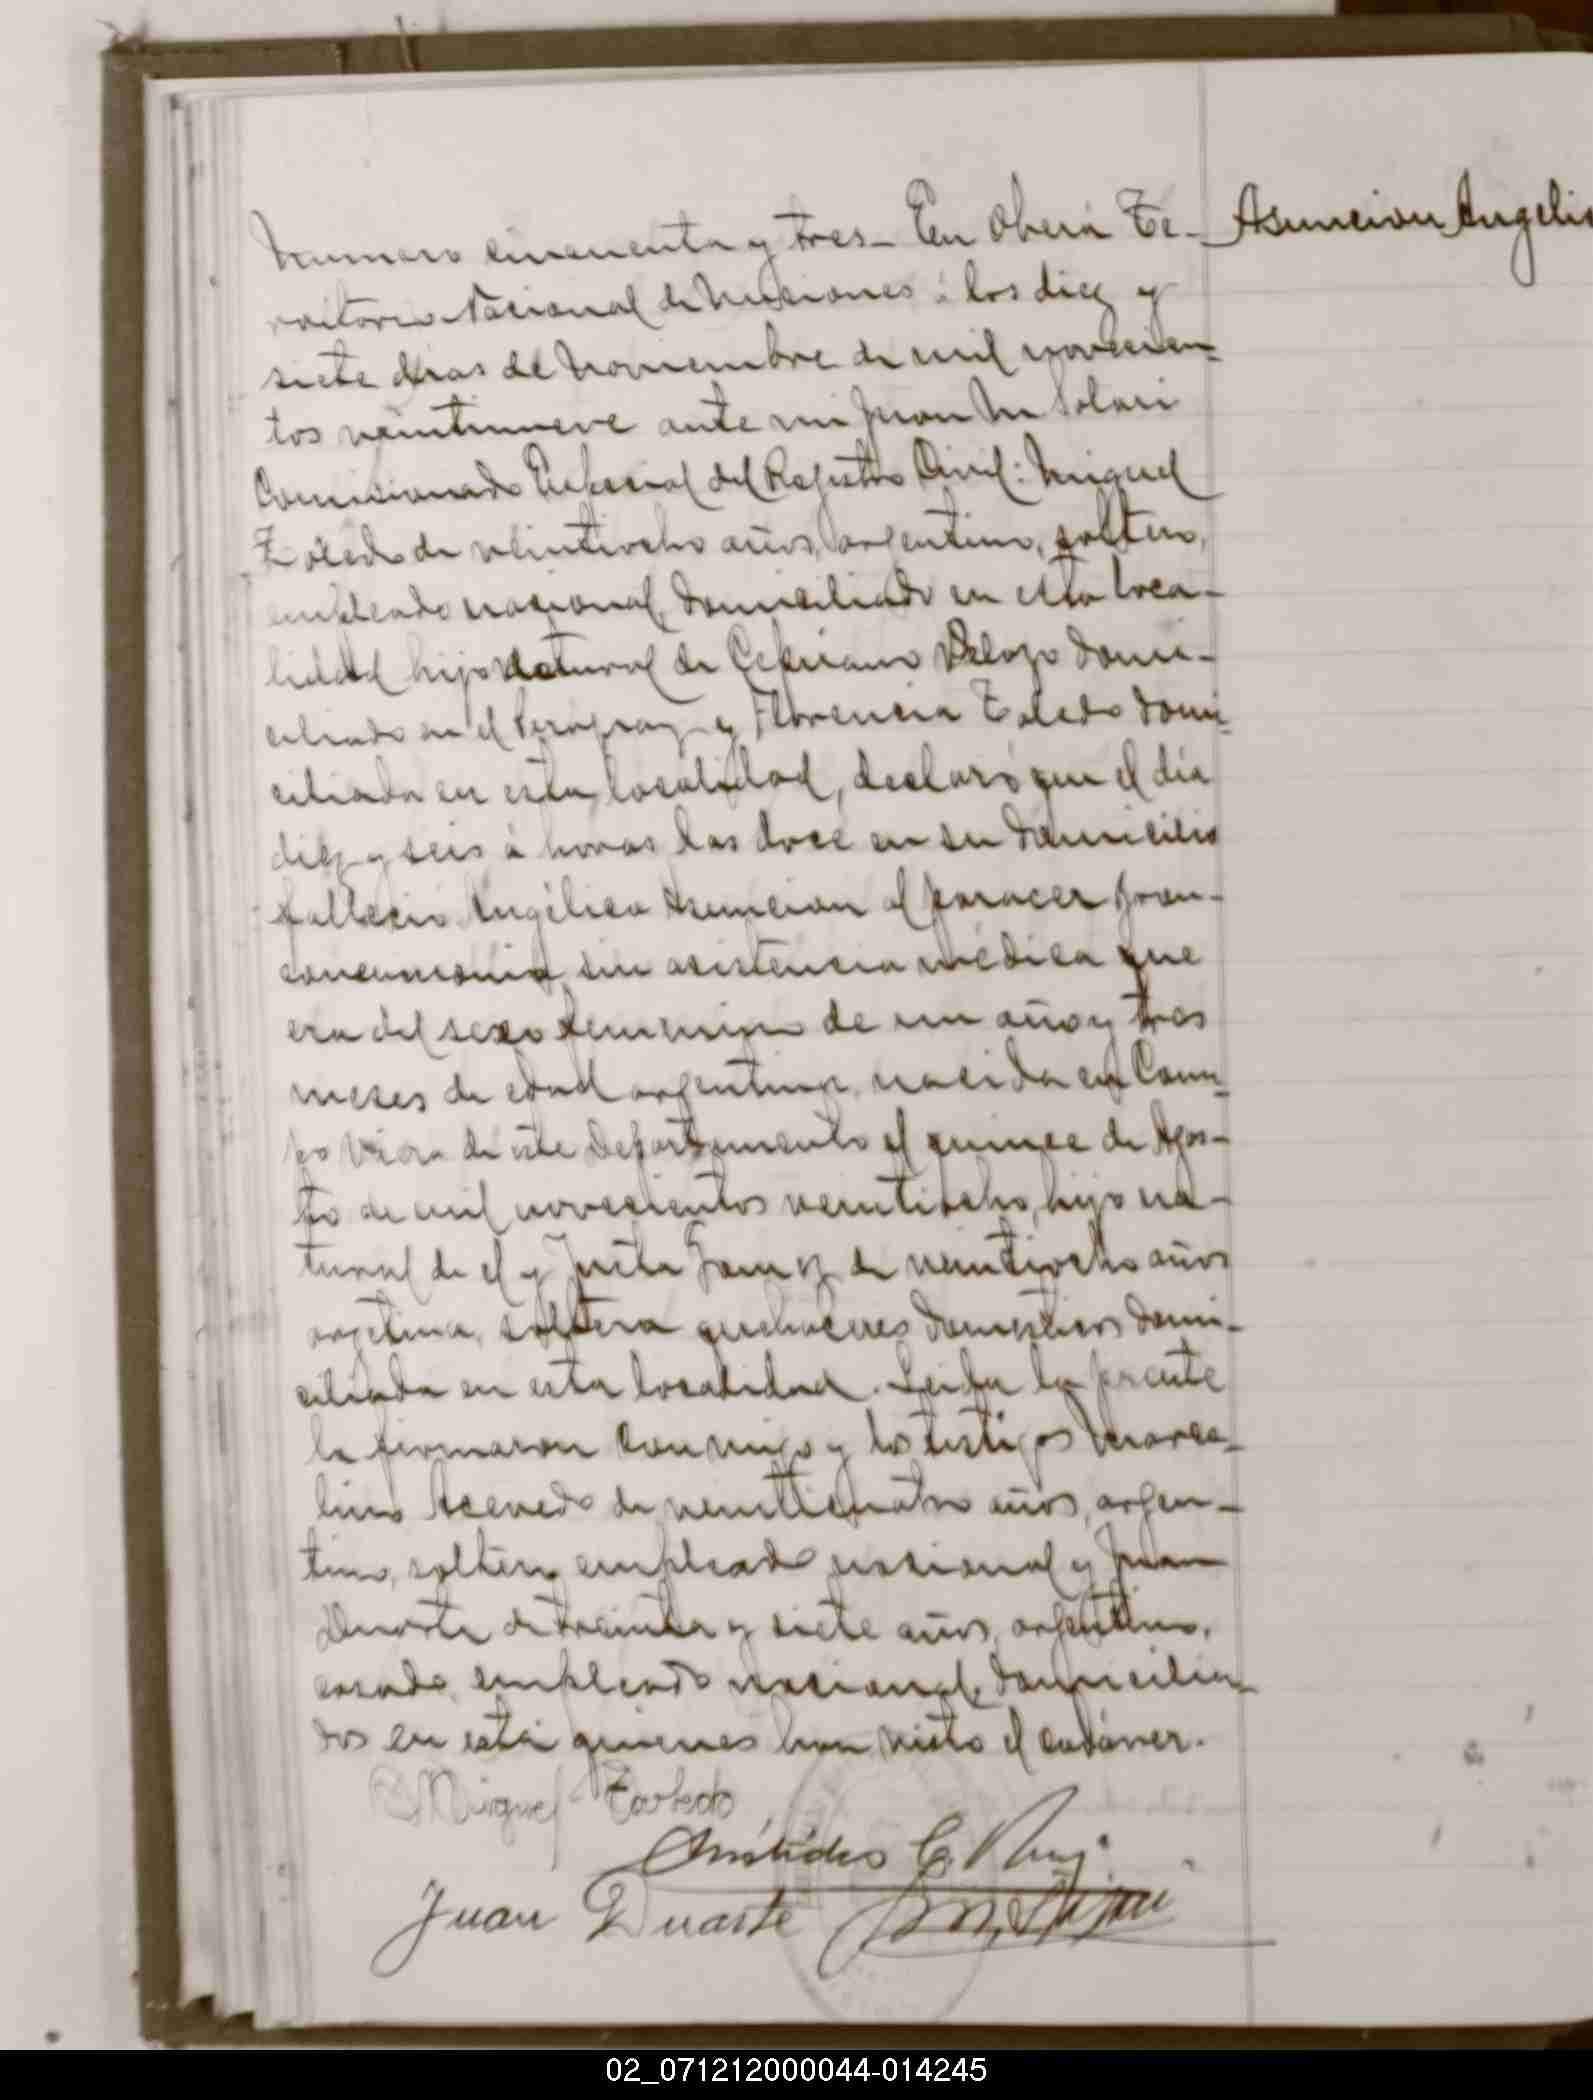 Numero cincuenta y tres - En Oberá Te-
Asuncion Angelic
rritorio Nacional de Misiones á los diez y
siete dias de Noviembre de mil novecien-
tos veintinueve ante mi Juan M Solari
Comisionado Especial del Registro Civil: Miguel
Toledo de veintiocho años, argentino, soltero,
empleado nacional, domiciliado en esta loca-
lidad hijo natural de Cipriano Velozo domi-
ciliado en el Paraguay y Florencia Toledo domi-
ciliada en esta localidad, declaró que el día
diez y seis á horas las doce en su domicilio
fallecio Angélica Asuncion al parecer bron-
coneumonia sin asistencia médica que
era del sexo femenino de un año y tres
meses de edad argentina, nacida en Cam-
po Viera de este Departamento el quince de Agos-
to de mil novecientos veintiocho, hija na-
tural de el y Justa Gomez de veintiocho años
argetina, soltera quehaceres domesticos domi-
ciliada en esta localidad. Leida la presente
la firmaron conmigo y los testigos Marce-
lino Acevedo de veinticuatro años, argen-
tino, soltero empleado nacional y Juan
Duarte de treinta y siete años, argentino,
casado, empleado nacional, domicilia-
dos en esta quienes han visto el cadáver.
Miguel Toledo
Arístides C. Ruiz
Juan Duarte